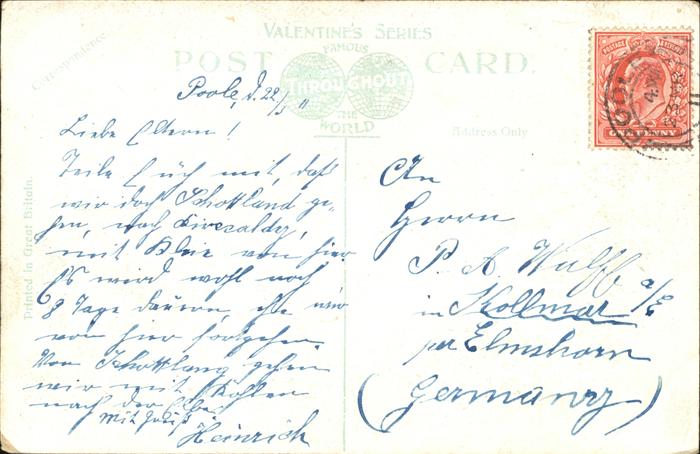 Correspondence.
VALENTINE'S SERIES
FAMOUS
POST CARD.
THROUGHOUT
THE
WORLD
Address Only
Printed in Great Britain.
POSTAGE
ONE PENNY
Poole, d. 22/3 11
Liebe Eltern!
Teile Euch mit, daß
wir doch Schottland ge-
hen, nach
mit Kleie von hier
Es wird wohl noch
8 Tage dauern, ehe wir
von hier fortgehen.
Von Schottland gehen
wir mit Kohlen
nach der Elbe
Mit Gruß
Heinrich
An
Herrn
P. A. Wulff
in Kollmar a/E
per Elmshorn
(Germany)